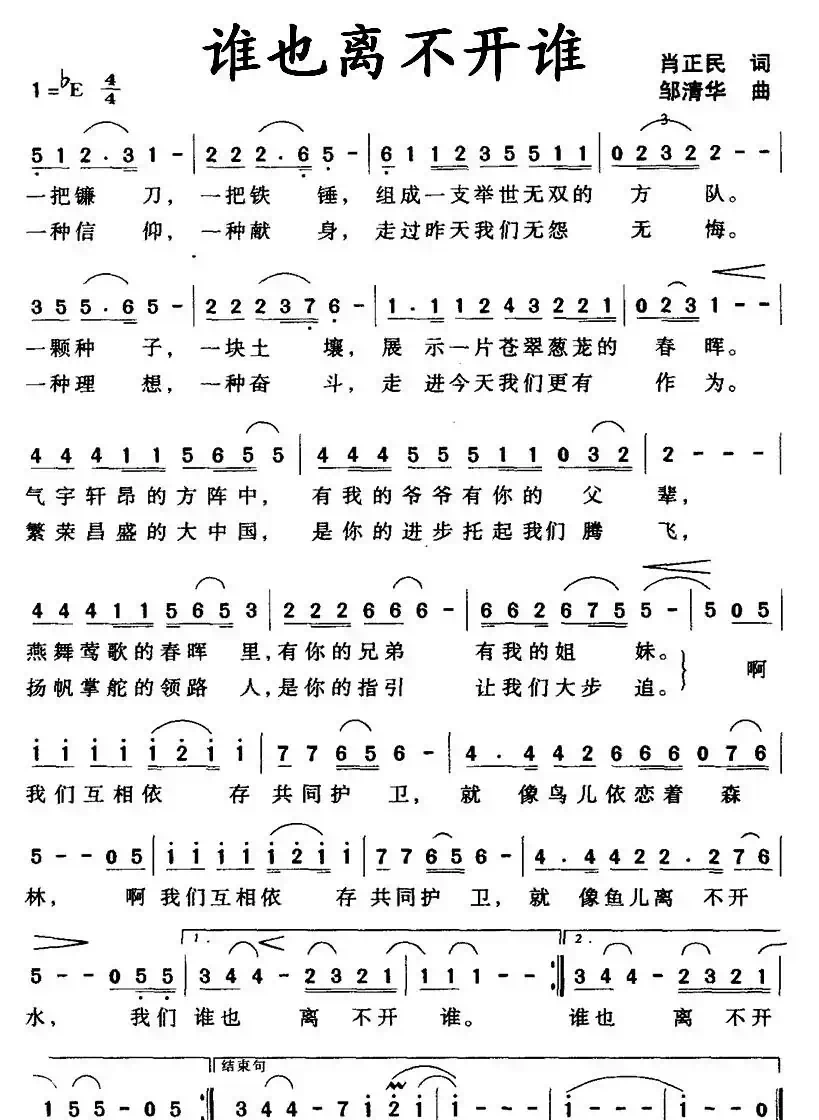 谁也离不开谁
肖正民 词
1=♭E 4/4
邹清华 曲
3
5 1 2 . 3 1 - | 2 2 2 . 6 5 - | 6 1 1 2 3 5 5 5 1 1 | 0 2 3 2 2 - - |
一把镰 刀, 一把铁 锤, 组成一支举世无双的 方 队。
一种信 仰, 一种献 身, 走过昨天我们无怨 无 悔。
3 5 5 . 6 5 - | 2 2 2 3 7 6 - | 1 . 1 1 2 4 3 2 2 1 | 0 2 3 1 - - |
一颗种 子, 一块土 壤, 展 示一片苍翠葱茏的 春 晖。
一种理 想, 一种奋 斗, 走 进今天我们更有 作 为。
4 4 4 1 1 5 6 5 5 | 4 4 4 5 5 5 1 1 0 3 2 | 2 - - - |
气宇轩昂的方阵中, 有我的爷爷有你的 父 辈,
繁荣昌盛的大中国, 是你的进步托起我们 腾 飞,
4 4 4 1 1 5 6 5 3 | 2 2 2 6 6 6 - | 6 6 2 6 7 5 5 - | 5 0 5 |
燕舞莺歌的春晖 里,有你的兄弟 有我的姐 妹。 啊
扬帆掌舵的领路 人,是你的指引 让我们大步 追。
i i i i i 2̇ i i | 7 7 6 5 6 - | 4 . 4 4 2 6 6 6 0 7 6 |
我们互相依 存 共同护 卫, 就 像鸟儿依恋着 森
5 - - 0 5 | i i i i i 2̇ i i | 7 7 6 5 6 - | 4 . 4 4 2 2 . 2 7 6 |
林, 啊 我们互相依 存 共同护 卫, 就 像鱼儿离 不开
1. 2.
5 - - 0 5 5 | 3 4 4 - 2 3 2 1 | 1 1 1 - - - :| 3 4 4 - 2 3 2 1 |
水, 我们 谁也 离 不开 谁。 谁也 离 不开
结束句
1 5 5 - 0 5 :| 3 4 4 - 7 i 2̇ i | i - - - | i - - - | i - - 0 |